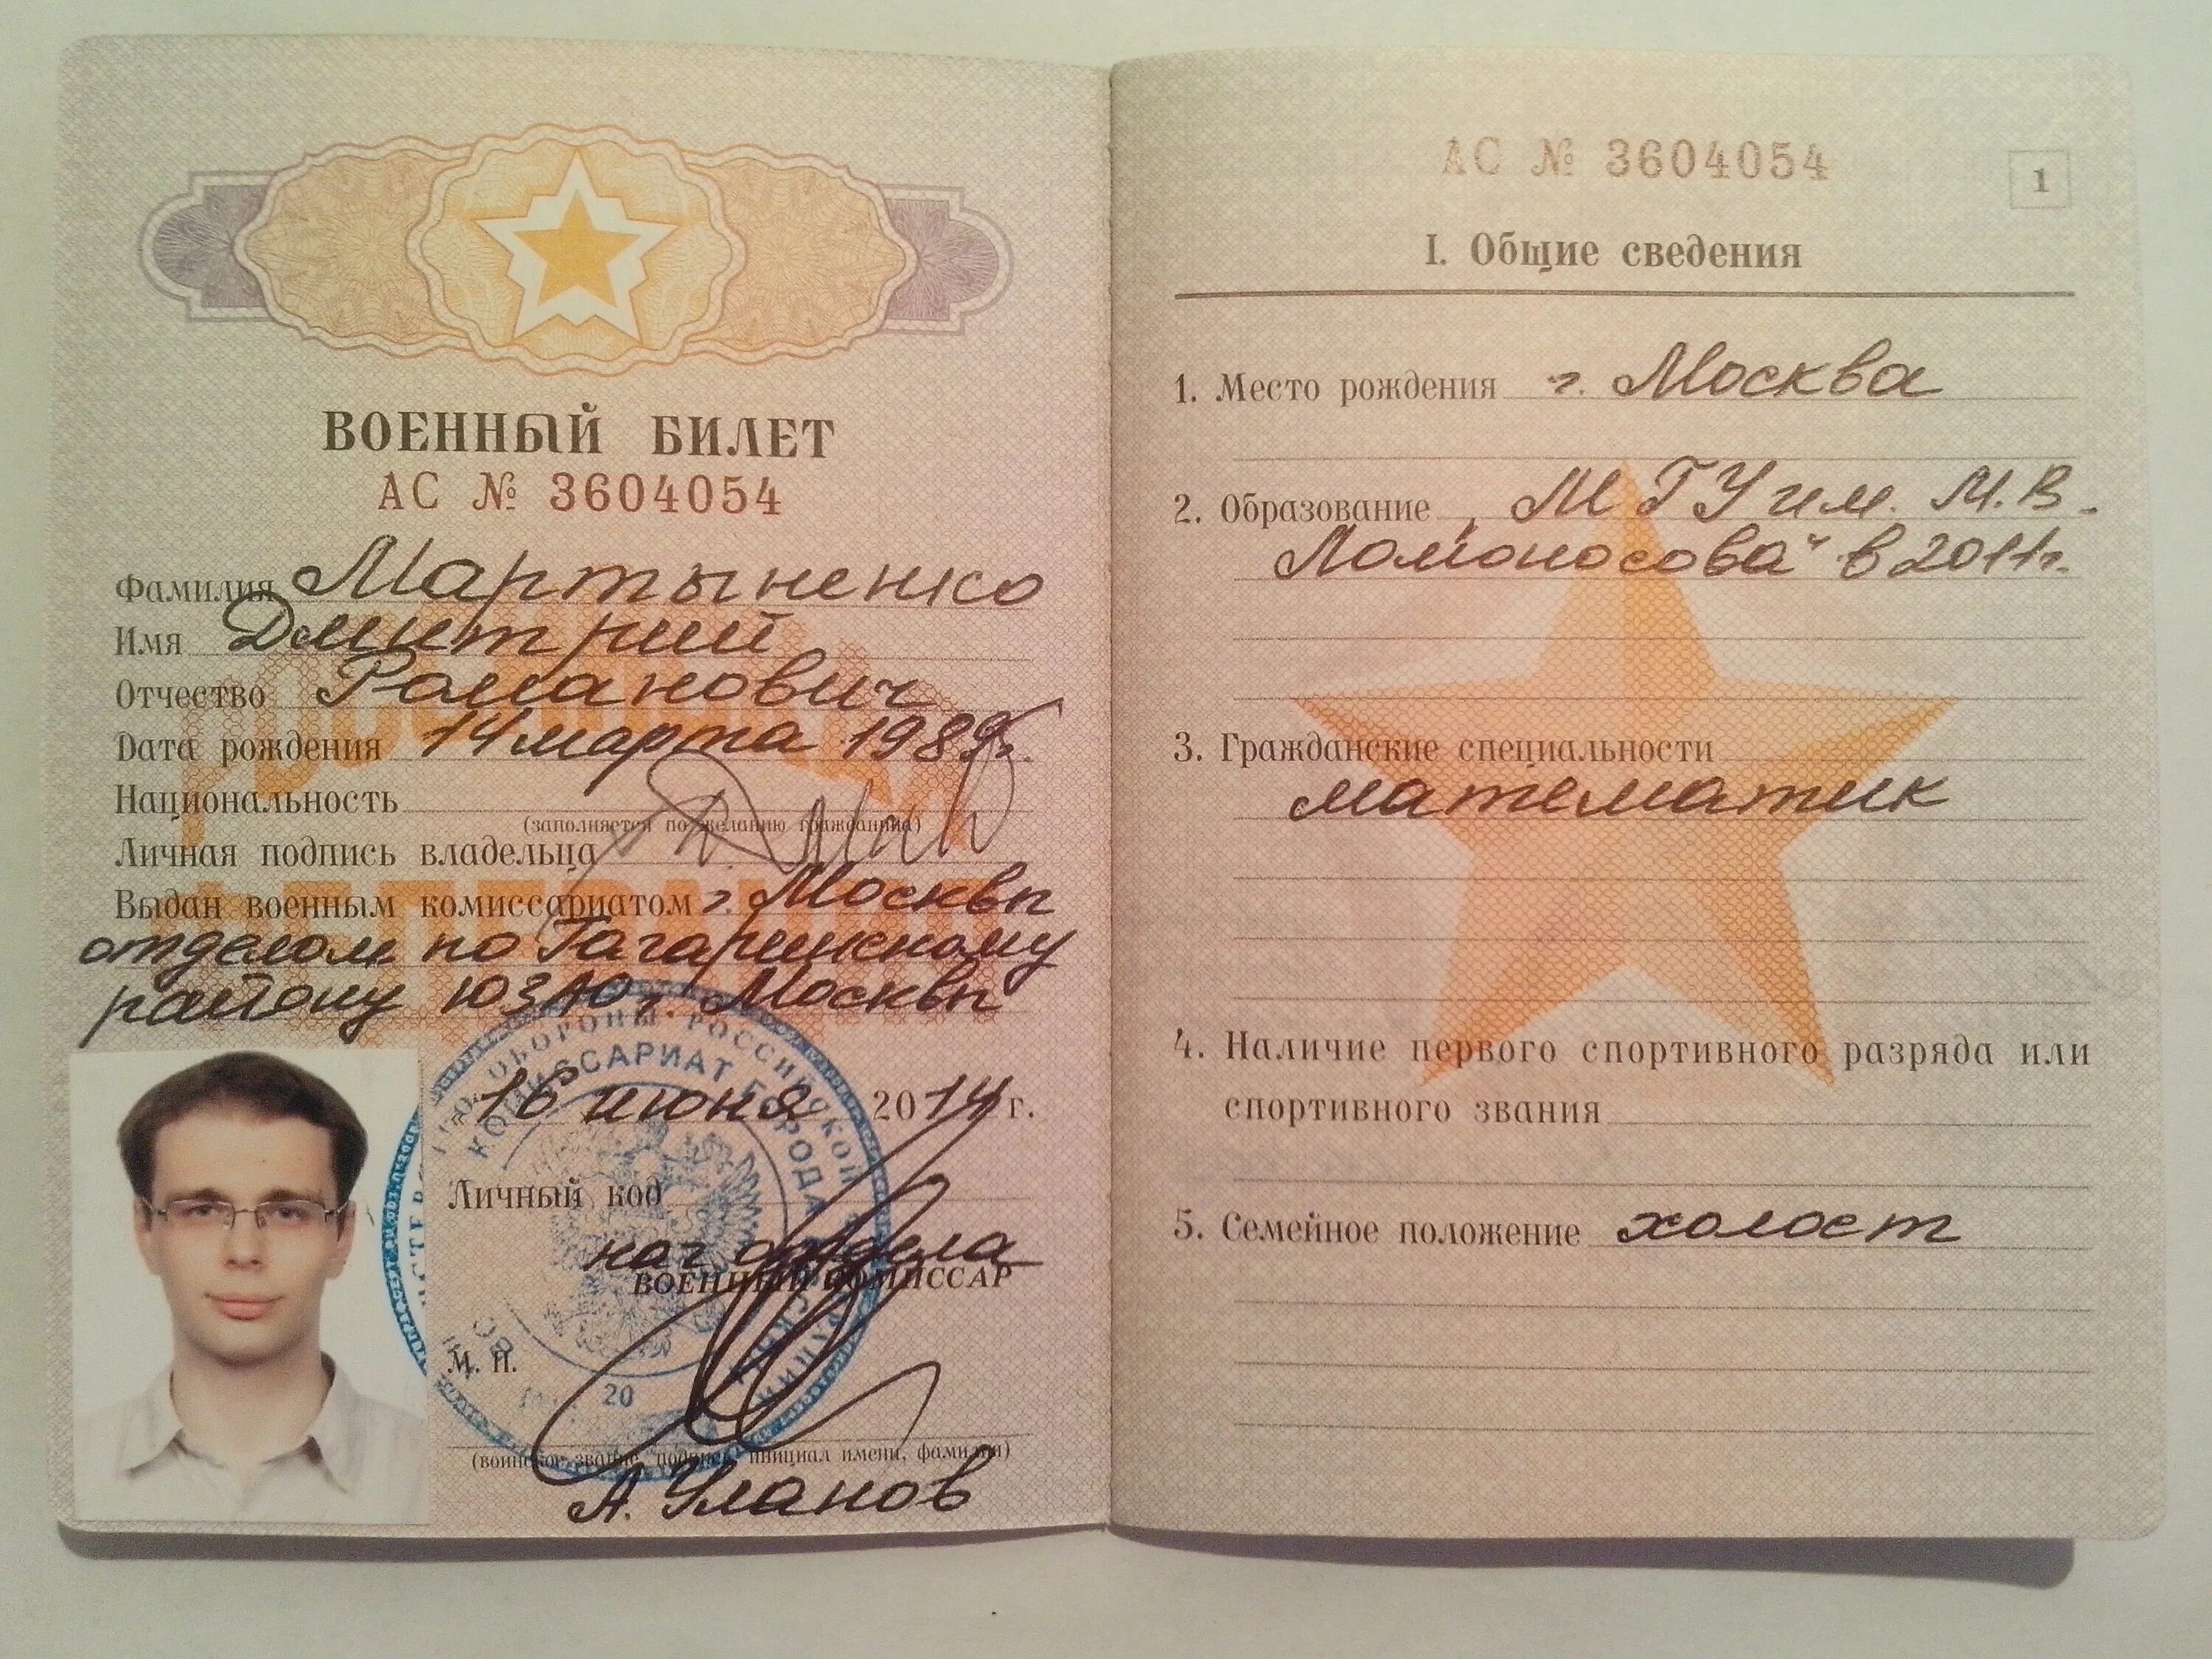 ВОЕННЫЙ БИЛЕТ
АС № 3604054
Фамилия Мартыненко
Имя Дмитрий
Отчество Романович
Дата рождения 14 марта 1989г.
Национальность
(заполняется по желанию гражданина)
Личная подпись владельца
Выдан военным комиссариатом г. Москвы
отделом по Гагаринскому
району ЮЗАО г. Москвы
16 июня 2014 г.
Личный код
нач отдела
ВОЕННЫЙ КОМИССАР
М. П.
20
(воинское звание, подпись, инициал имени, фамилия)
А. Уланов
ОБОРОНЫ РОССИЙСКОЙ
КОМИССАРИАТ ГОРОДА
АС № 3604054
1
I. Общие сведения
1. Место рождения г. Москва
2. Образование „МГУ им. М.В.
Ломоносова" в 2011г.
3. Гражданские специальности
математик
4. Наличие первого спортивного разряда или
спортивного звания
5. Семейное положение холост